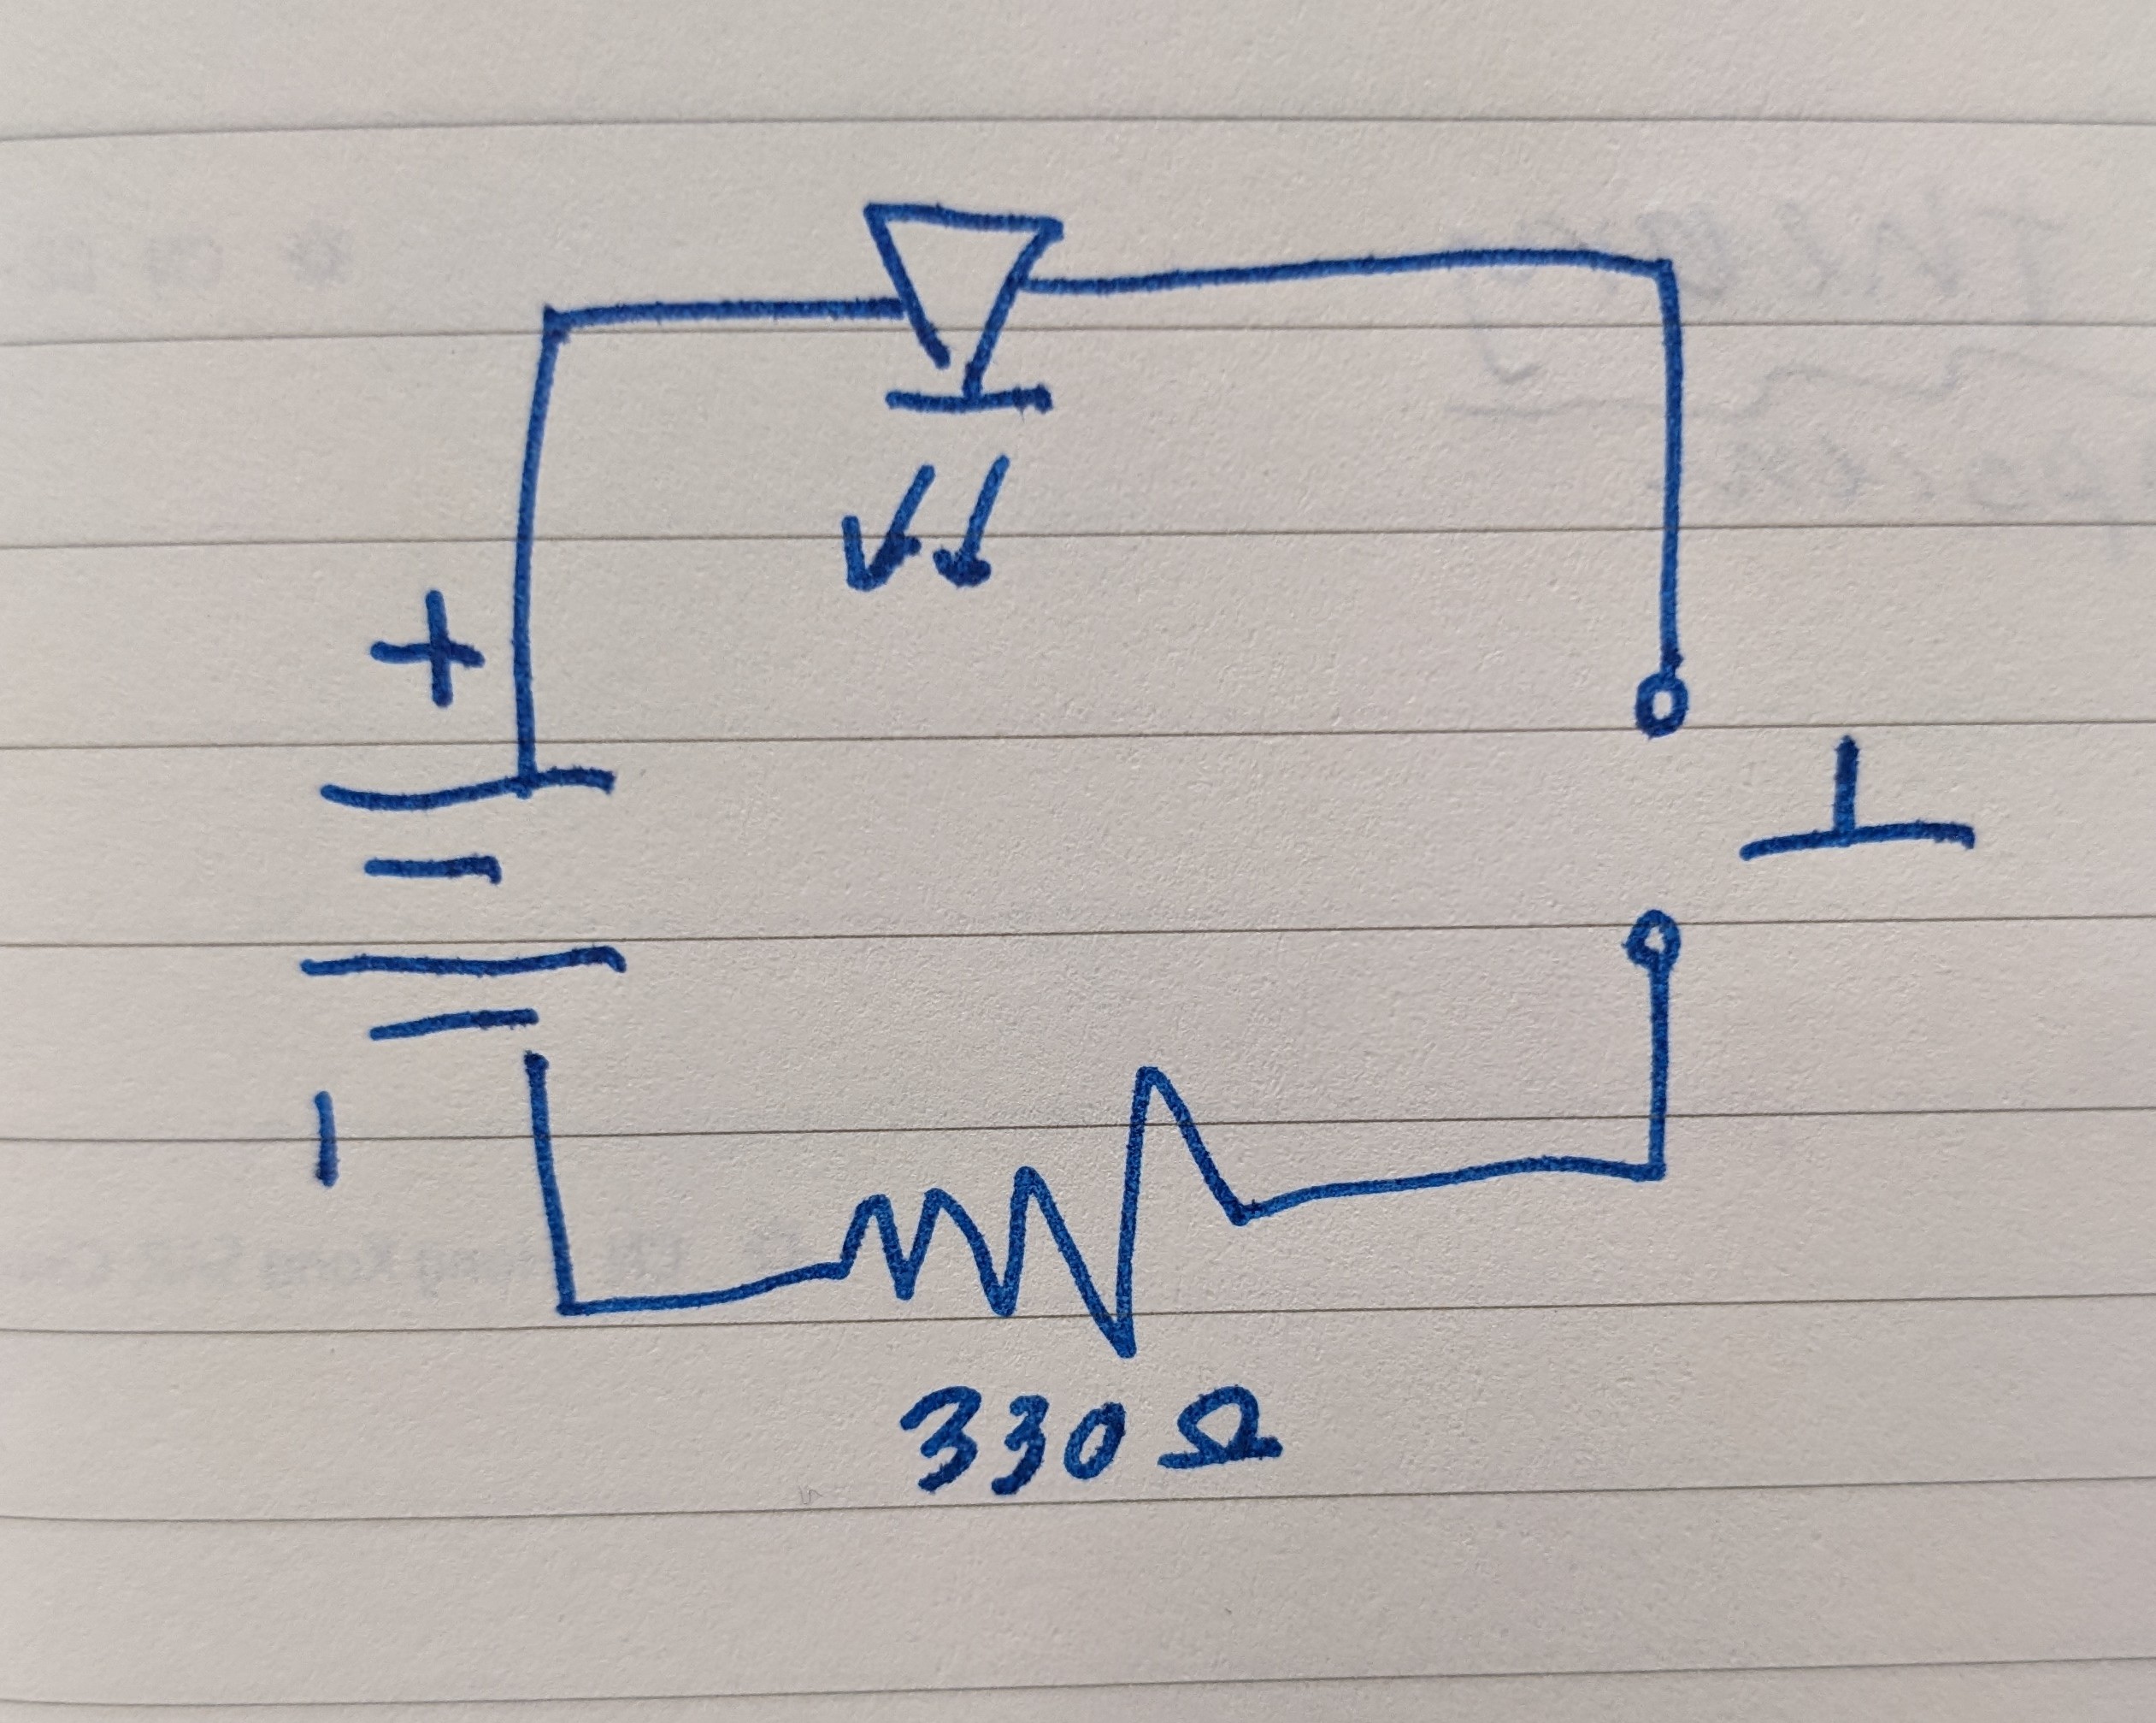 +
-
330 Ω